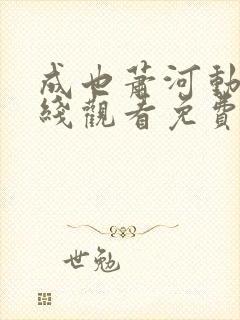 成也萧河動
綫觀看免費
世勉